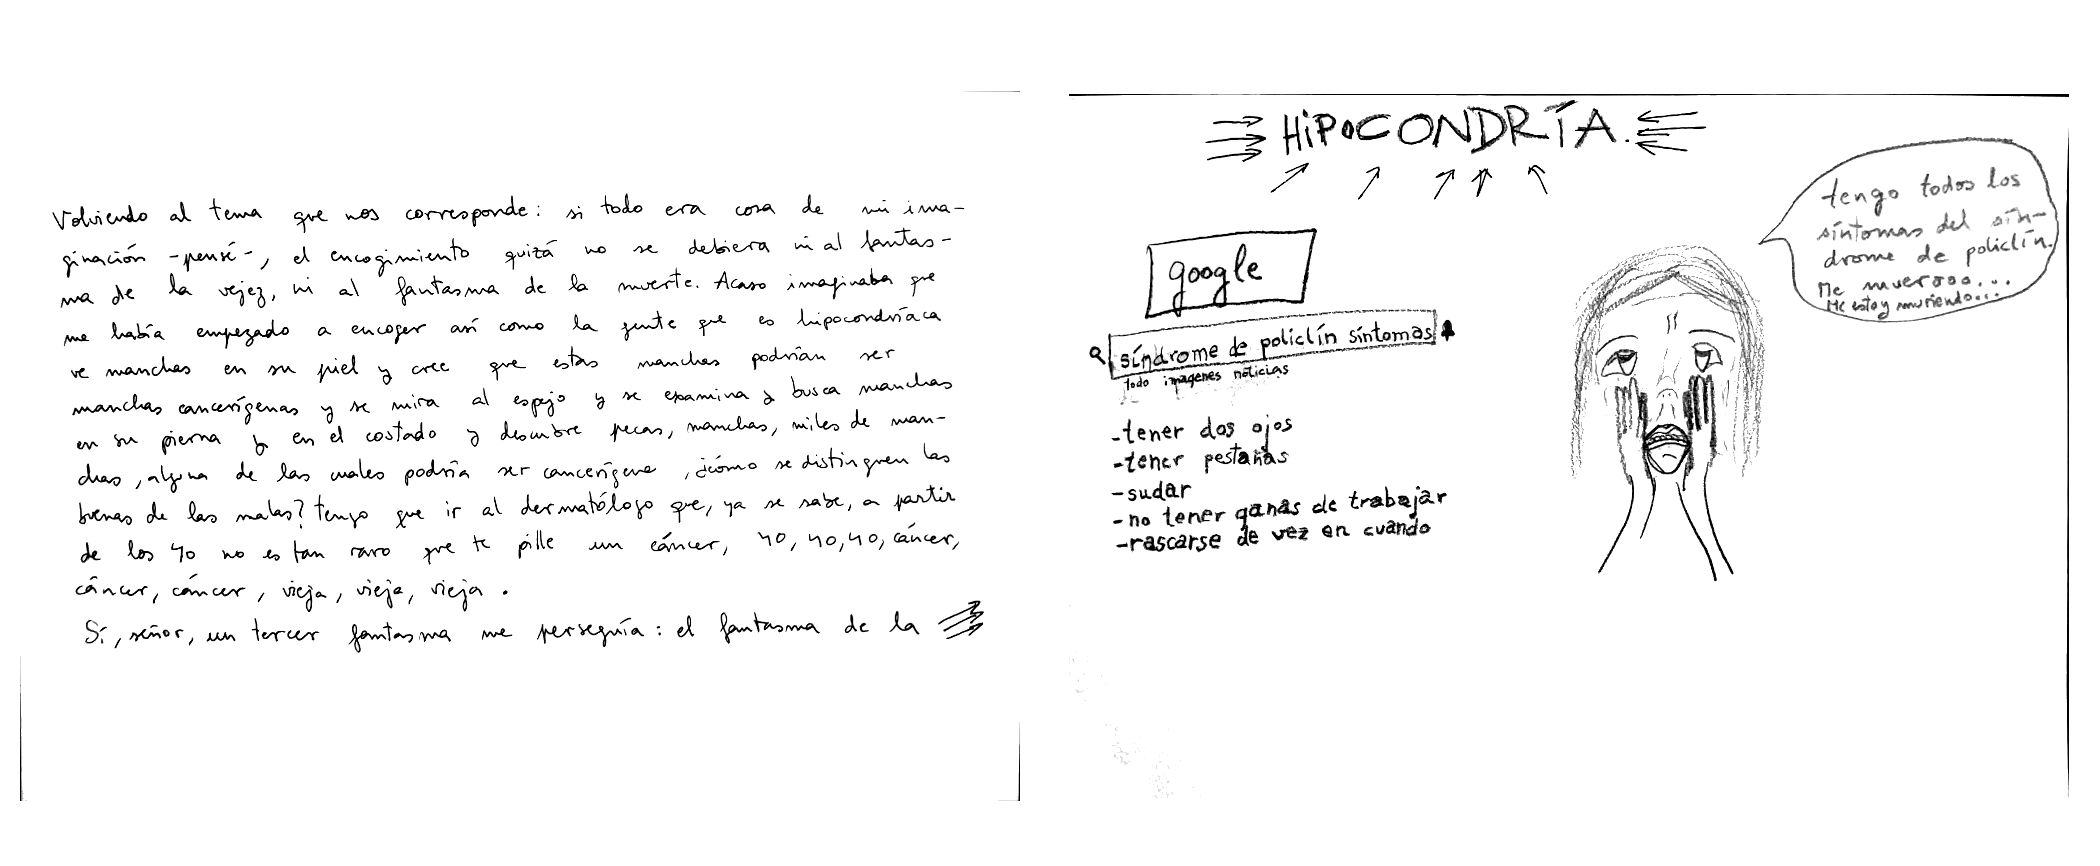 Volviendo al tema que nos corresponde: si todo era cosa de mi ima-
ginación -pensé-, el encogimiento quizá no se debiera ni al fantas-
ma de la vejez, ni al fantasma de la muerte. Acaso imaginaba que
me había empezado a encoger así como la gente que es hipocondríaca
ve manchas en su piel y cree que estas manchas podrían ser
manchas cancerígenas y se mira al espejo y se examina y busca manchas
en su pierna y en el costado y descubre pecas, manchas, miles de man-
chas, alguna de las cuales podría ser cancerígena, ¿cómo se distinguen las
buenas de las malas? tengo que ir al dermatólogo que, ya se sabe, a partir
de los 40 no es tan raro que te pille un cáncer, 40, 40, 40, cáncer,
cáncer, cáncer, vieja, vieja, vieja.
Sí, señor, un tercer fantasma me perseguía: el fantasma de la
HIPOCONDRÍA.
google
síndrome de policlín síntomas
todo imagenes noticias
-tener dos ojos
-tener pestañas
-sudar
-no tener ganas de trabajar
-rascarse de vez en cuando
tengo todos los
síntomas del sín-
drome de policlín.
Me mueroooo...
Me estoy muriendo...